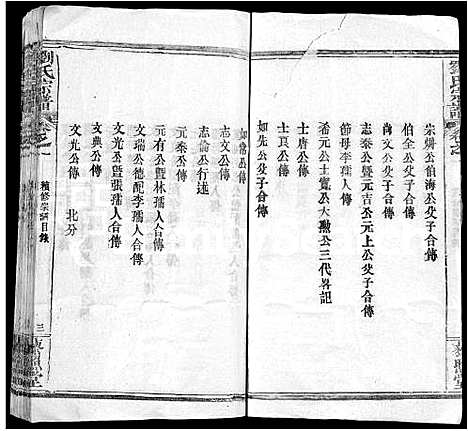 劉氏宗譜
宗耕公伯海公父子合傳
伯全公父子合傳
尚文公父子合傳
志泰公暨元吉公元上公父子合傳
節母李孺人傳
希元公士寬公大勲公三代畧記
士唐公傳
士良公傳
如先公父子合傳
如常公傳
志文公傳
志倫公行述
元泰公傳
元有公暨林孺人合傳
文瑞公德配李孺人合傳
文光公暨張孺人合傳
文典公傳
文光公傳
北分
劉氏宗譜
卷之一
續修宗譜目錄
三
照堂